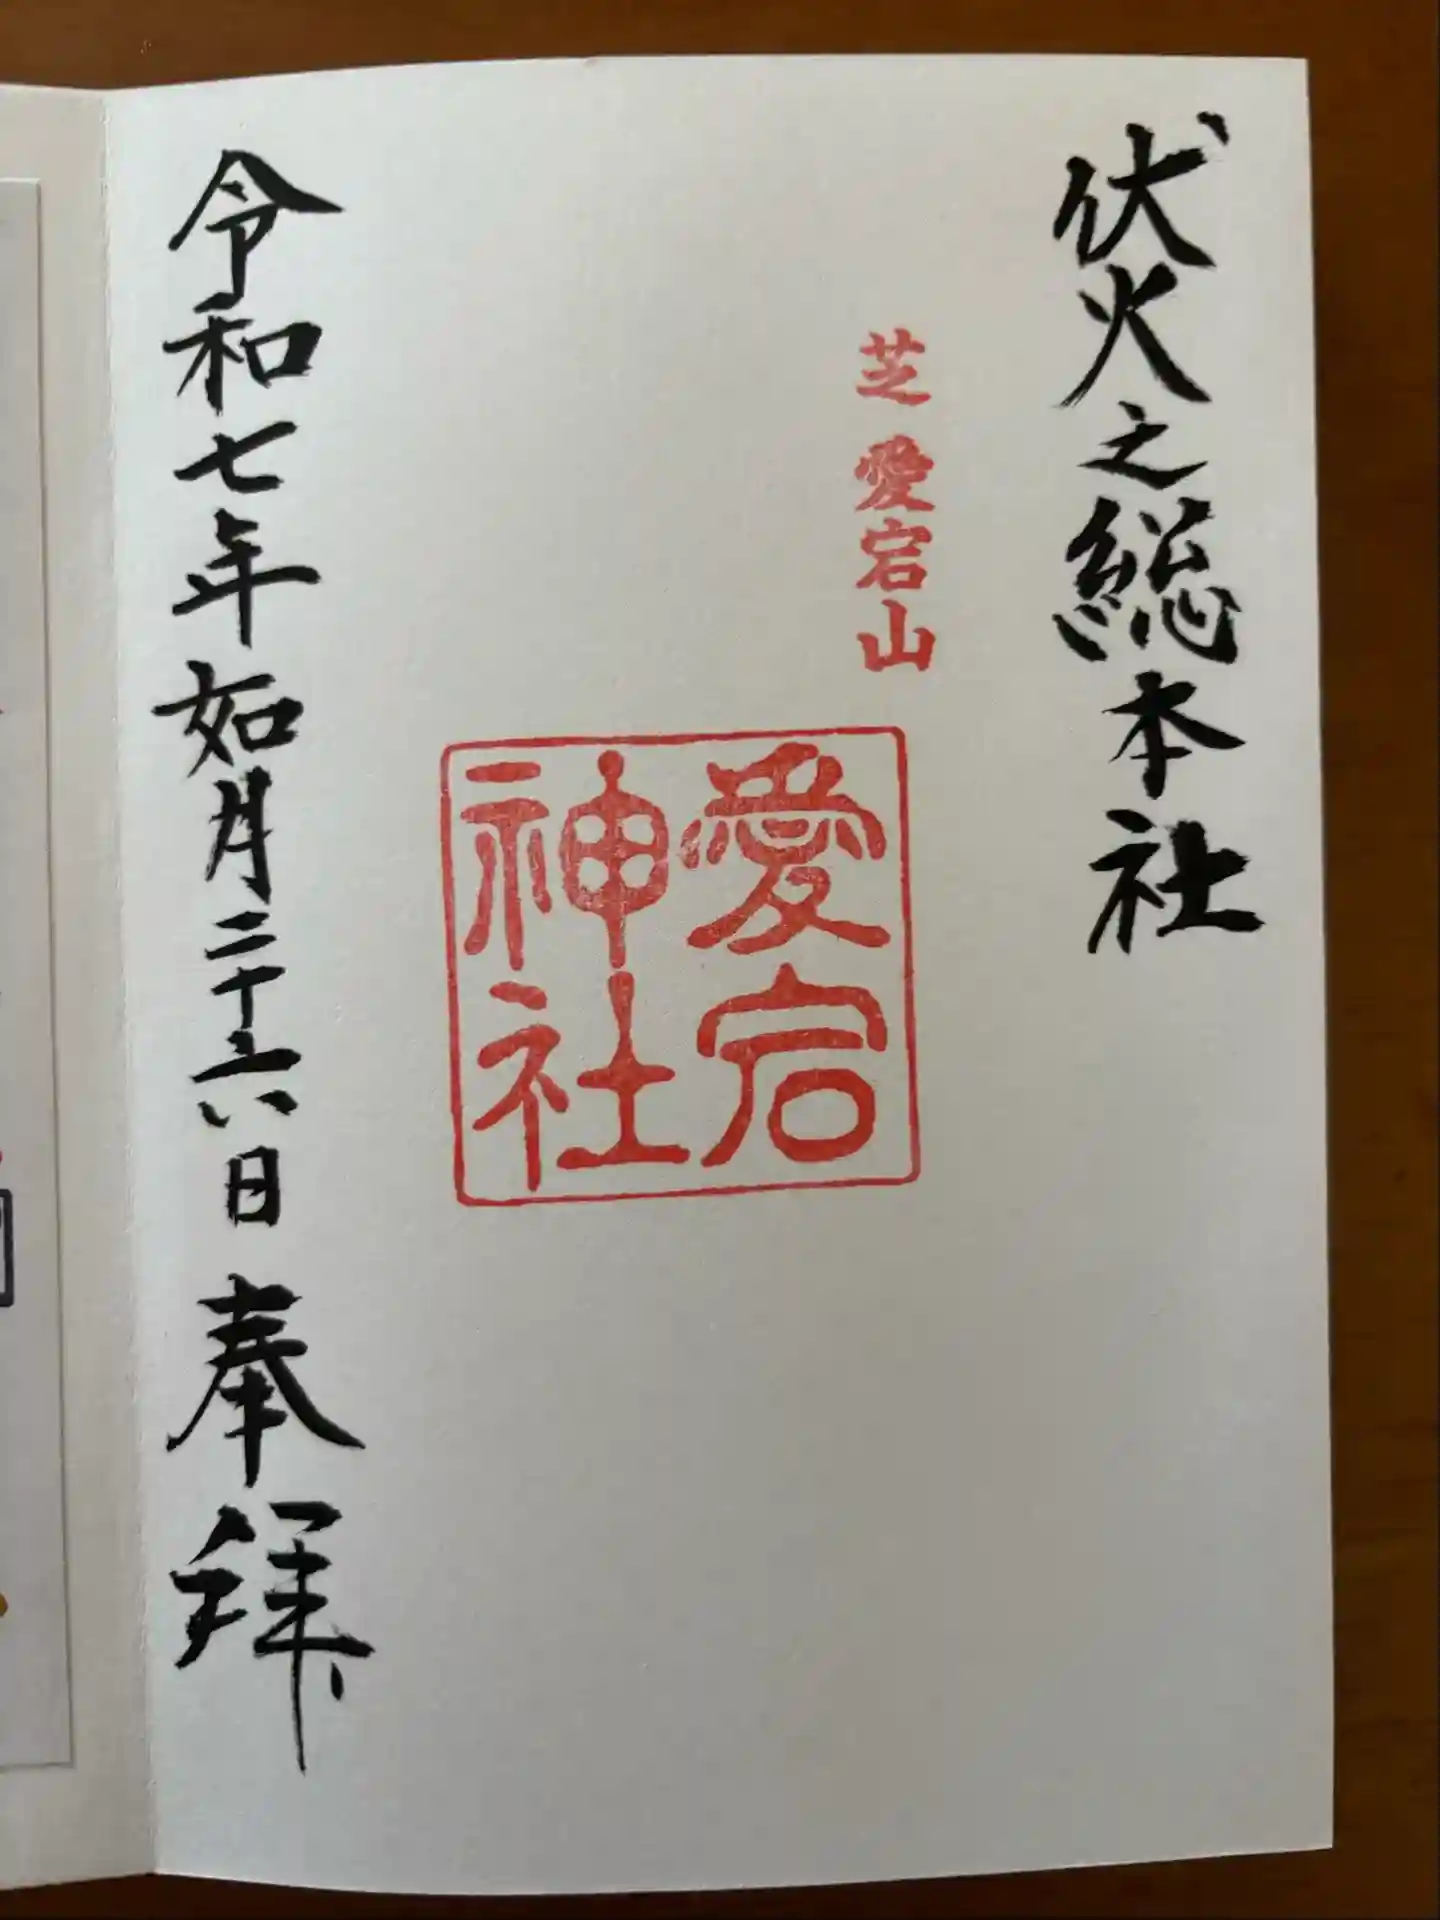 伏火之総本社
芝 愛宕山
愛宕
神社
令和七年如月二十六日 奉拝